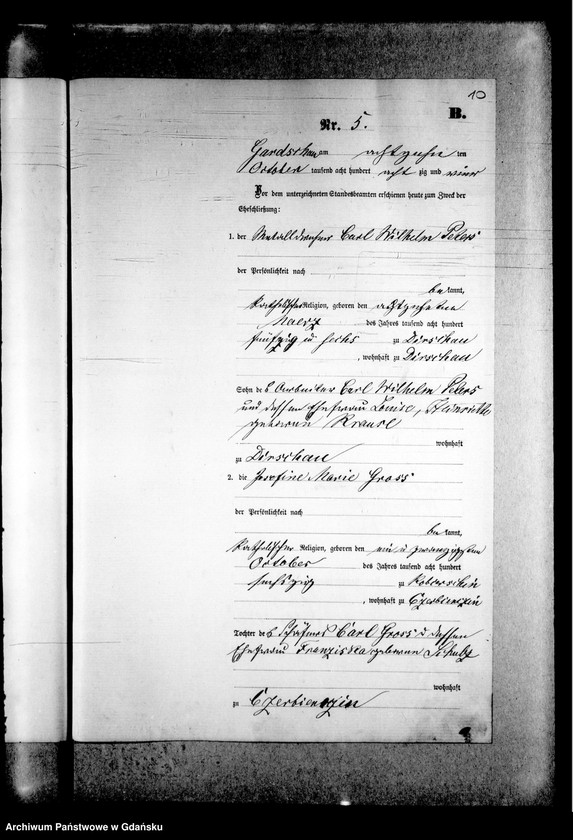 10
B.
Nr. 5.
Gardschau am achtzehn ten
October tausend acht hundert acht zig und vier
Vor dem unterzeichneten Standesbeamten erschienen heute zum Zweck der
Eheschließung:
1. der Metalldreher Carl Wilhelm Peters
der Persönlichkeit nach
be kannt,
katholischer Religion, geboren den achtzehnten
Maerz des Jahres tausend acht hundert
fünfzig u sechs zu Dirschau
, wohnhaft zu Dirschau
Sohn des Arbeiter Carl Wilhelm Peters
und dessen Ehefrau Louise, Heinriette
geborene Krause
wohnhaft
zu Dirschau
2. die Josefine Marie Gross
der Persönlichkeit nach
be kannt,
katholischer Religion, geboren den ein u zwanzigsten
October des Jahres tausend acht hundert
sechszig zu
, wohnhaft zu Czerbienczin
Tochter des Schäfers Carl Gross u dessen
Ehefrau Franziska geborene Schulz
wohnhaft
zu Czerbienczin
Archiwum Państwowe w Gdańsku